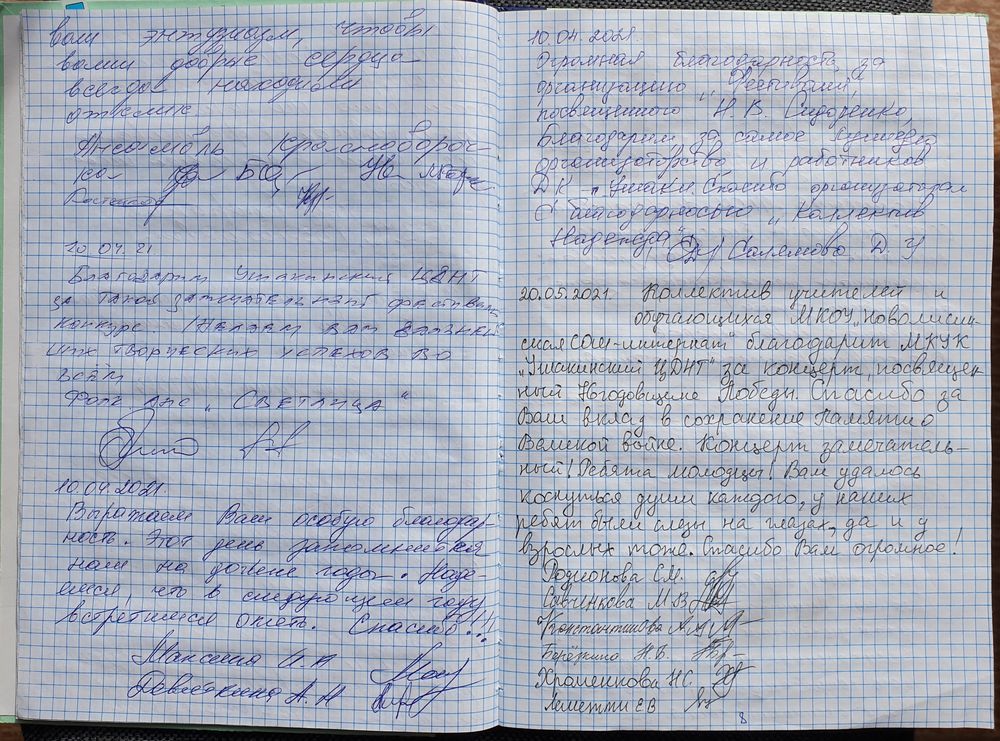 ваш энтузиазм, чтобы
ваши добрые сердца
всегда находили
отклик
Ансамбль
10.04.21
Благодарим Ушакинский ЦДНТ
за такой замечательный фестиваль
конкурс Желаем вам дальней
ших творческих успехов во
всём
Фольк анс „СВЕТЛИЦА“
10.04.2021.
Выражаем Вам особую благодар-
ность. Этот день запомнится
нам на долгие годы. Наде-
емся, что в следующем году
встретимся опять. Спасибо!!!
А. Н
10.04.2021.
Огромная благодарность за
организацию „Фестиваля,
посвященного Н. В. Сидоренко,
Благодарим за самое
организаторство и работников
ДК п Ушаки. Спасибо организаторам
С благодарностью „Коллектив
Надежда“ Д. У
20.05.2021. Коллектив учителей и
обучающихся МКОУ „Новолисин-
ская СОШ-интернат“ благодарит МКУК
„Ушакинский ЦДНТ“ за концерт, посвящен-
ный 76годовщине Победы. Спасибо за
Ваш вклад в сохранение памяти о
Великой войне. Концерт замечатель-
ный! Ребята молодцы! Вам удалось
коснуться души каждого, у наших
ребят были слёзы на глазах, да и у
взрослых тоже. Спасибо Вам огромное!
Родионова С.М.
Савинкова М В
Константинова А.А
Берёзкина Н.В.
Храменкова Н.С.
Леметти Е В
8